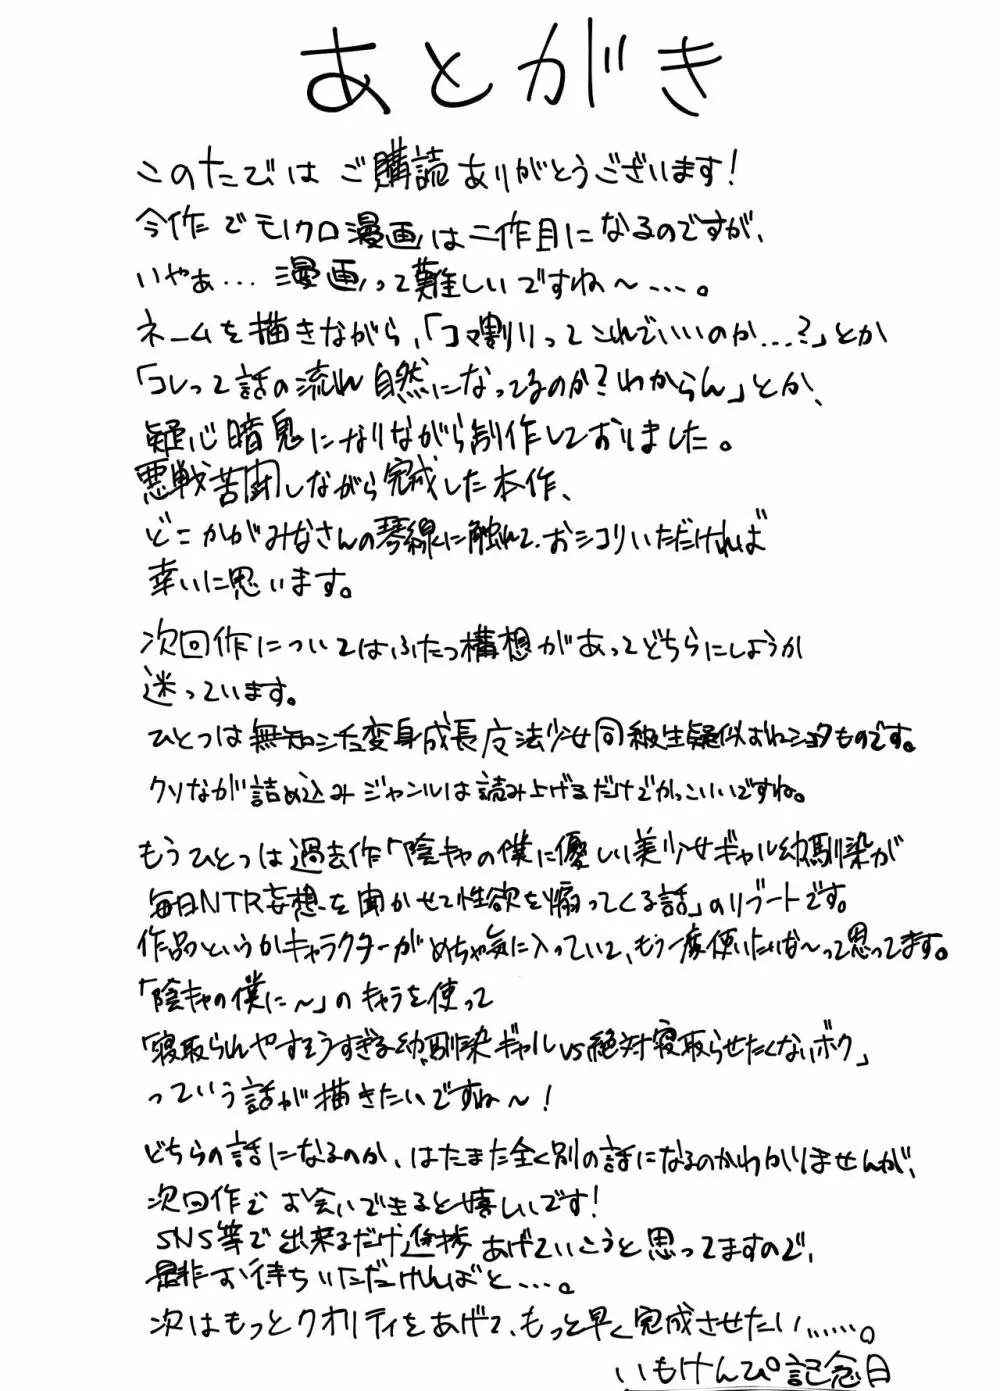 あとがき
このたびは ご購読ありがとうございます!
今作でモノクロ漫画は二作目になるのですが、
いやぁ… 漫画って難しいですね〜…。
ネームを描きながら、「コマ割りってこれでいいのか…?」とか
「コレって話の流れ自然になってるのか?わからん」とか、
疑心暗鬼になりながら制作しておりました。
悪戦苦闘しながら完成した本作、
どこかがみなさんの琴線に触れて、おシコりいただければ
幸いに思います。
次回作についてはふたつ構想があってどちらにしようか
迷っています。
ひとつは無知シチュ変身成長魔法少女同級生疑似おねショタものです。
クソなが詰め込みジャンルは読み上げるだけでかっこいいですね。
もうひとつは過去作「陰キャの僕に優しい美少女ギャル幼馴染が
毎日NTR妄想を聞かせて性欲を煽ってくる話」のリブートです。
作品というかキャラクターがめちゃ気に入っていて、もう一度使いたいな〜って思ってます。
「陰キャの僕に〜」のキャラを使って
「寝取られやすそうすぎる幼馴染ギャルvs絶対寝取らせたくないボク」
っていう話が描きたいですね〜!
どちらの話になるのか、はたまた全く別の話になるのかわかりませんが、
次回作でお会いできると嬉しいです!
SNS等で出来るだけ進捗あげていこうと思ってますので、
是非お待ちいただければと…。
次はもっとクオリティをあげて、もっと早く完成させたい……。
いもけんぴ記念日